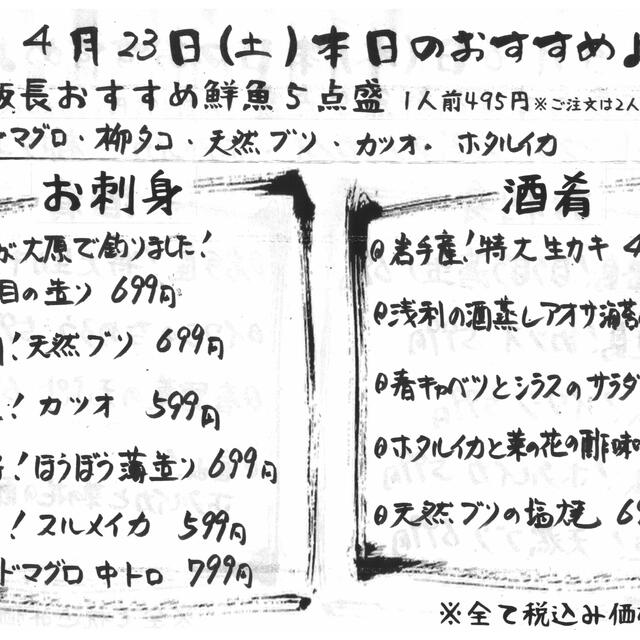 4月23日(土)本日のおすすめ♪
板長おすすめ鮮魚5点盛 1人前495円 ※ご注文は2人
マグロ・柳タコ・天然ブリ・カツオ・ホタルイカ
お刺身
が大原で釣りました!
目の造り 699円
!天然ブリ 699円
!カツオ 599円
!ほうぼう薄造り 699円
!スルメイカ 599円
ドマグロ中トロ 799円
酒肴
岩手産!特大生カキ 4
浅利の酒蒸しアオサ海苔
春キャベツとシラスのサラダ
ホタルイカと菜の花の酢味
天然ブリの塩焼 69
※全て税込み価